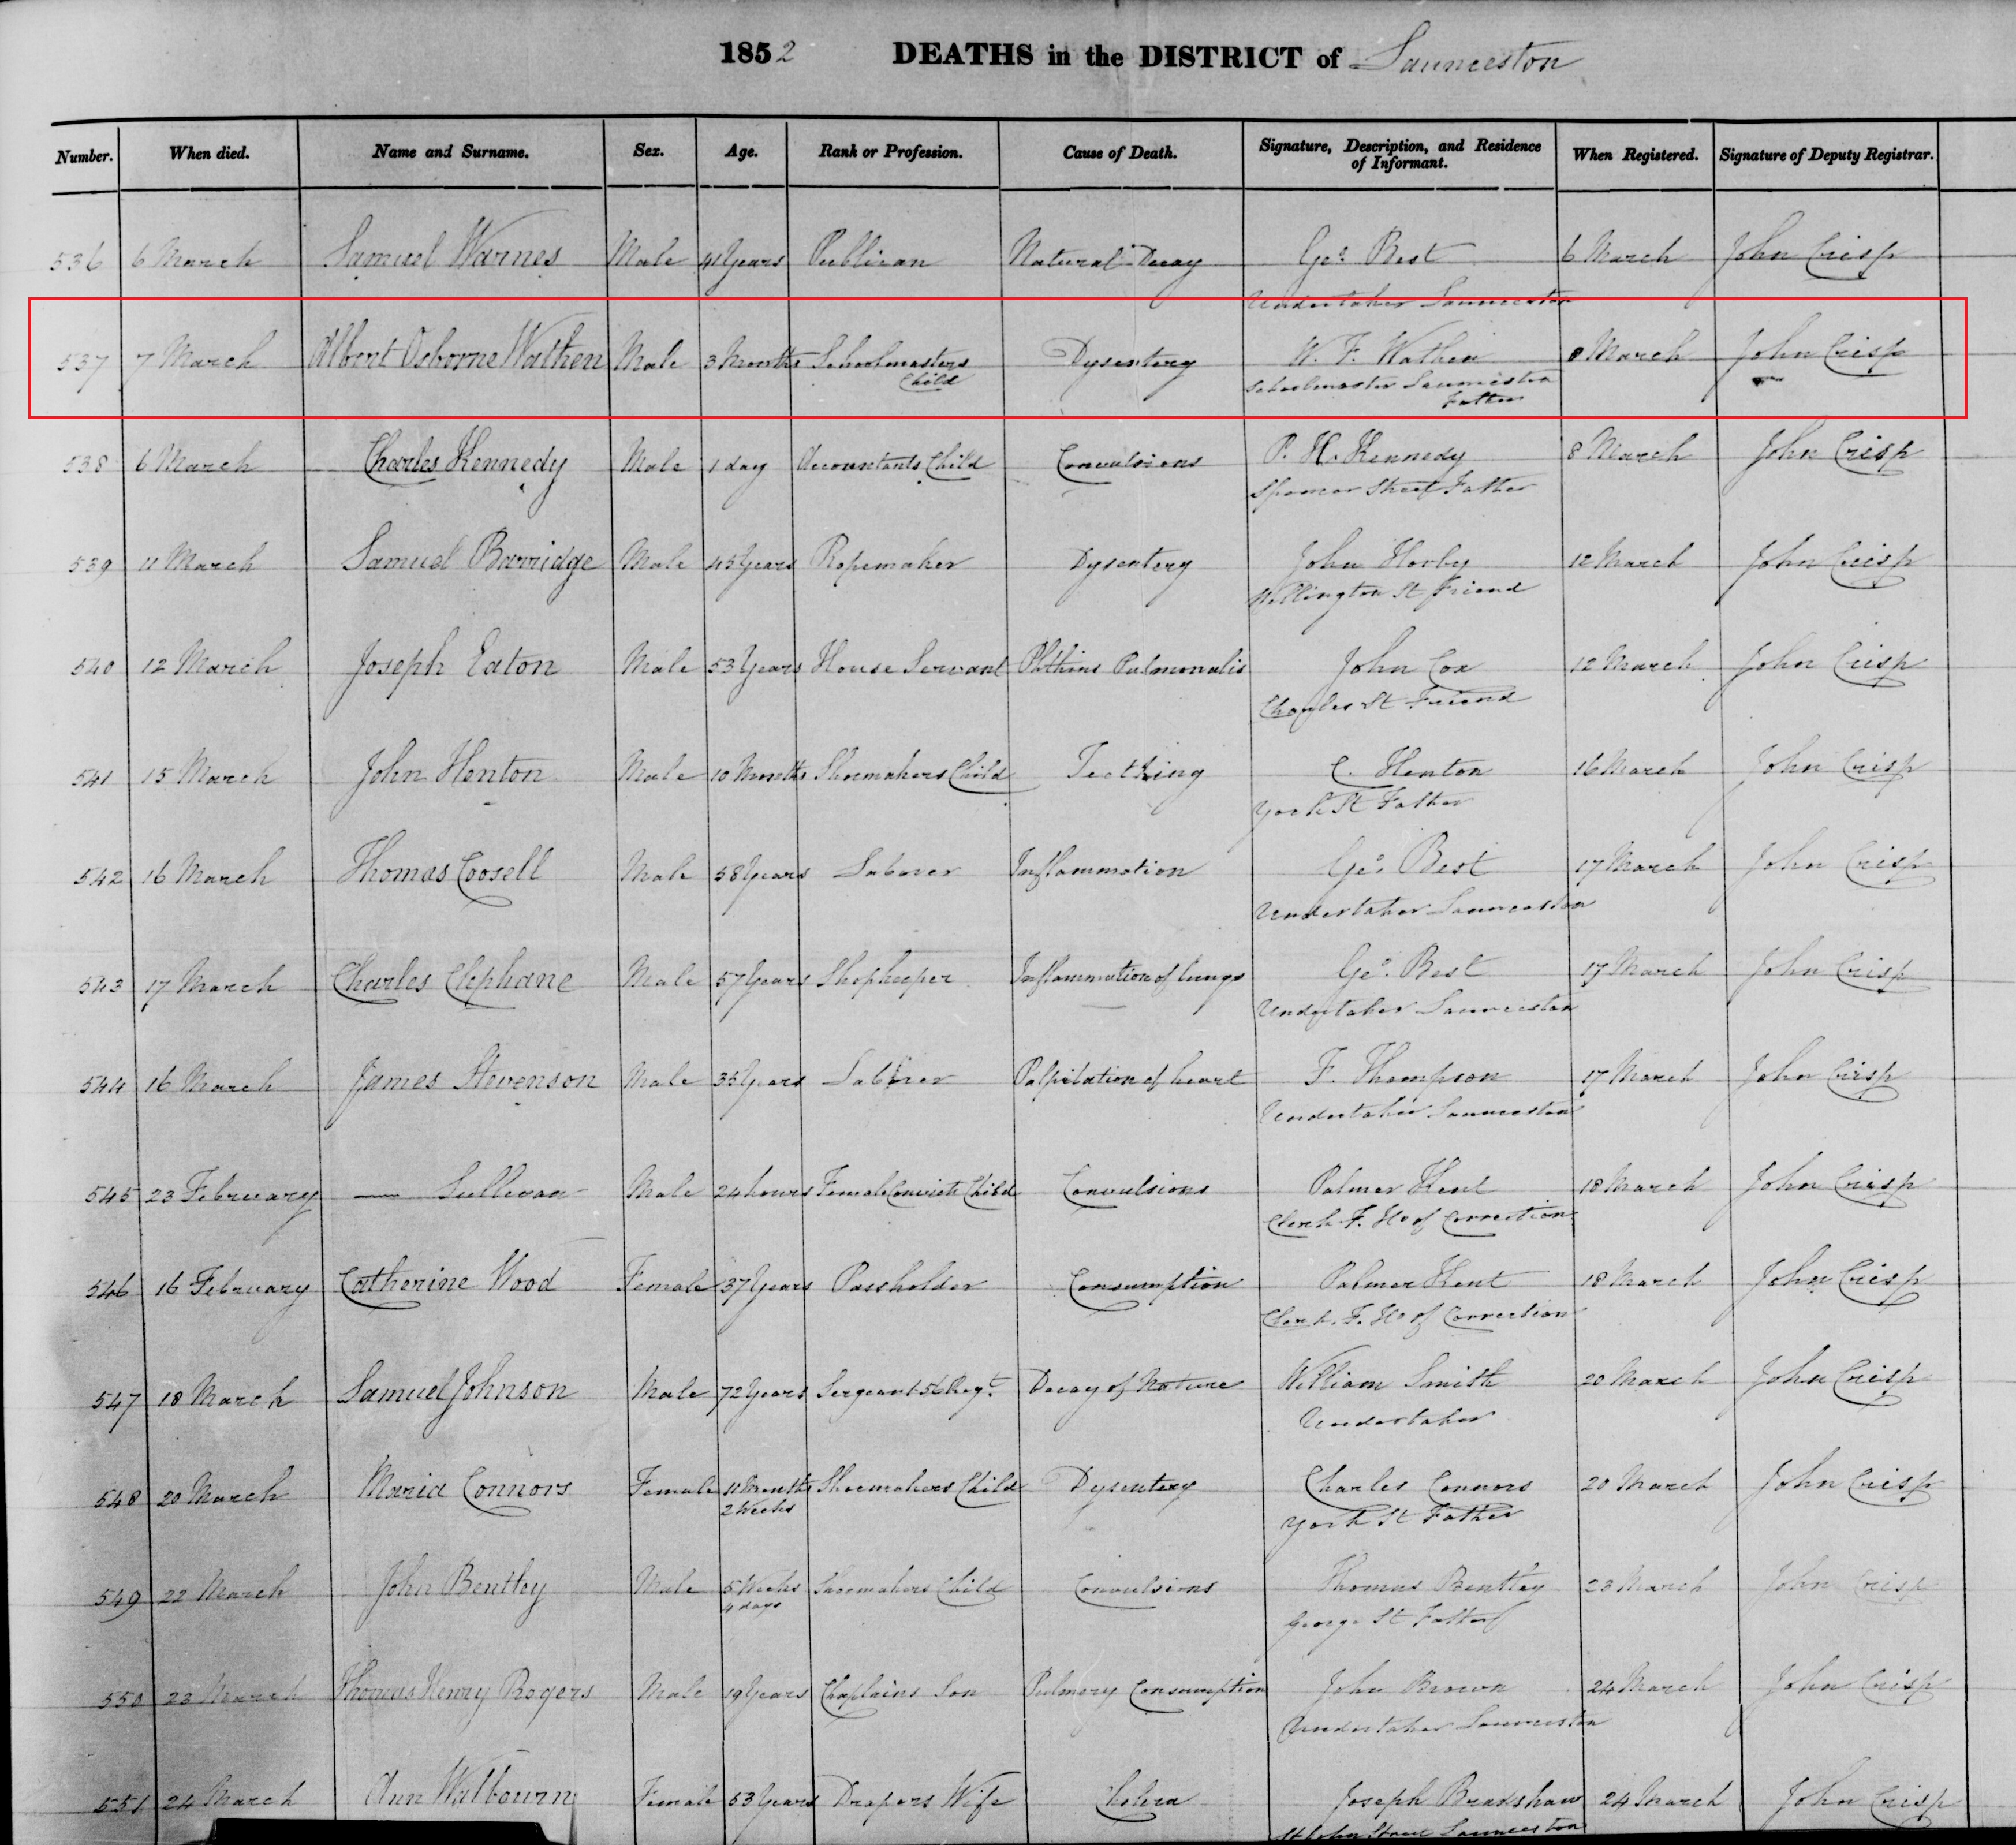 1852 DEATHS in the DISTRICT of Launceston
Number. When died. Name and Surname. Sex. Age. Rank or Profession. Cause of Death. Signature, Description, and Residence of Informant. When Registered. Signature of Deputy Registrar.
536 6 March Samuel Warnes Male 41 Years Publican Natural Decay Geo. Best 6 March John Crisp
Undertaker Launceston
537 7 March Albert Osborne Wathen Male 3 Months Schoolmasters Dysentery W. F. Wathen 8 March John Crisp
Child Schoolmaster Launceston
Father
538 6 March Charles Kennedy Male 1 day Accountants Child Convulsions P. H. Kennedy 8 March John Crisp
Street Father
539 11 March Samuel Burridge Male 45 Years Ropemaker Dysentery John Horby 12 March John Crisp
Wellington St Friend
540 12 March Joseph Eaton Male 53 Years House Servant Phthisis Pulmonalis John Cox 12 March John Crisp
Charles St Friend
541 15 March John Henton Male 10 Months Shoemakers Child Teething C. Henton 16 March John Crisp
York St Father
542 16 March Thomas Coosell Male 58 Years Laborer Inflammation Geo. Best 17 March John Crisp
Undertaker Launceston
543 17 March Charles Clephane Male 57 Years Shopkeeper Inflammation of lungs Geo. Best 17 March John Crisp
Undertaker Launceston
544 16 March James Stevenson Male 35 Years Laborer Palpitation of heart F. Thompson 17 March John Crisp
Undertaker Launceston
545 23 February — Sullivan Male 24 hours Female Convicts Child Convulsions Palmer Kent 18 March John Crisp
Clerk F. Ho of Correction
546 16 February Catherine Wood Female 37 Years Passholder Consumption Palmer Kent 18 March John Crisp
Clerk F. Ho of Correction
547 18 March Samuel Johnson Male 72 Years Sergeant 56 Regt. Decay of Nature William Smith 20 March John Crisp
Undertaker
548 20 March Maria Connors Female 11 Months Shoemakers Child Dysentery Charles Connors 20 March John Crisp
2 Weeks York St Father
549 22 March John Bentley Male 5 Weeks Shoemakers Child Convulsions Thomas Bentley 23 March John Crisp
4 days George St Father
550 23 March Thomas Henry Rogers Male 19 Years Chaplains Son Pulmory Consumption John Brown 24 March John Crisp
Undertaker Launceston
551 24 March Ann Walbourn Female 53 Years Drapers Wife Cholera Joseph Bradshaw 24 March John Crisp
St John Street Launceston